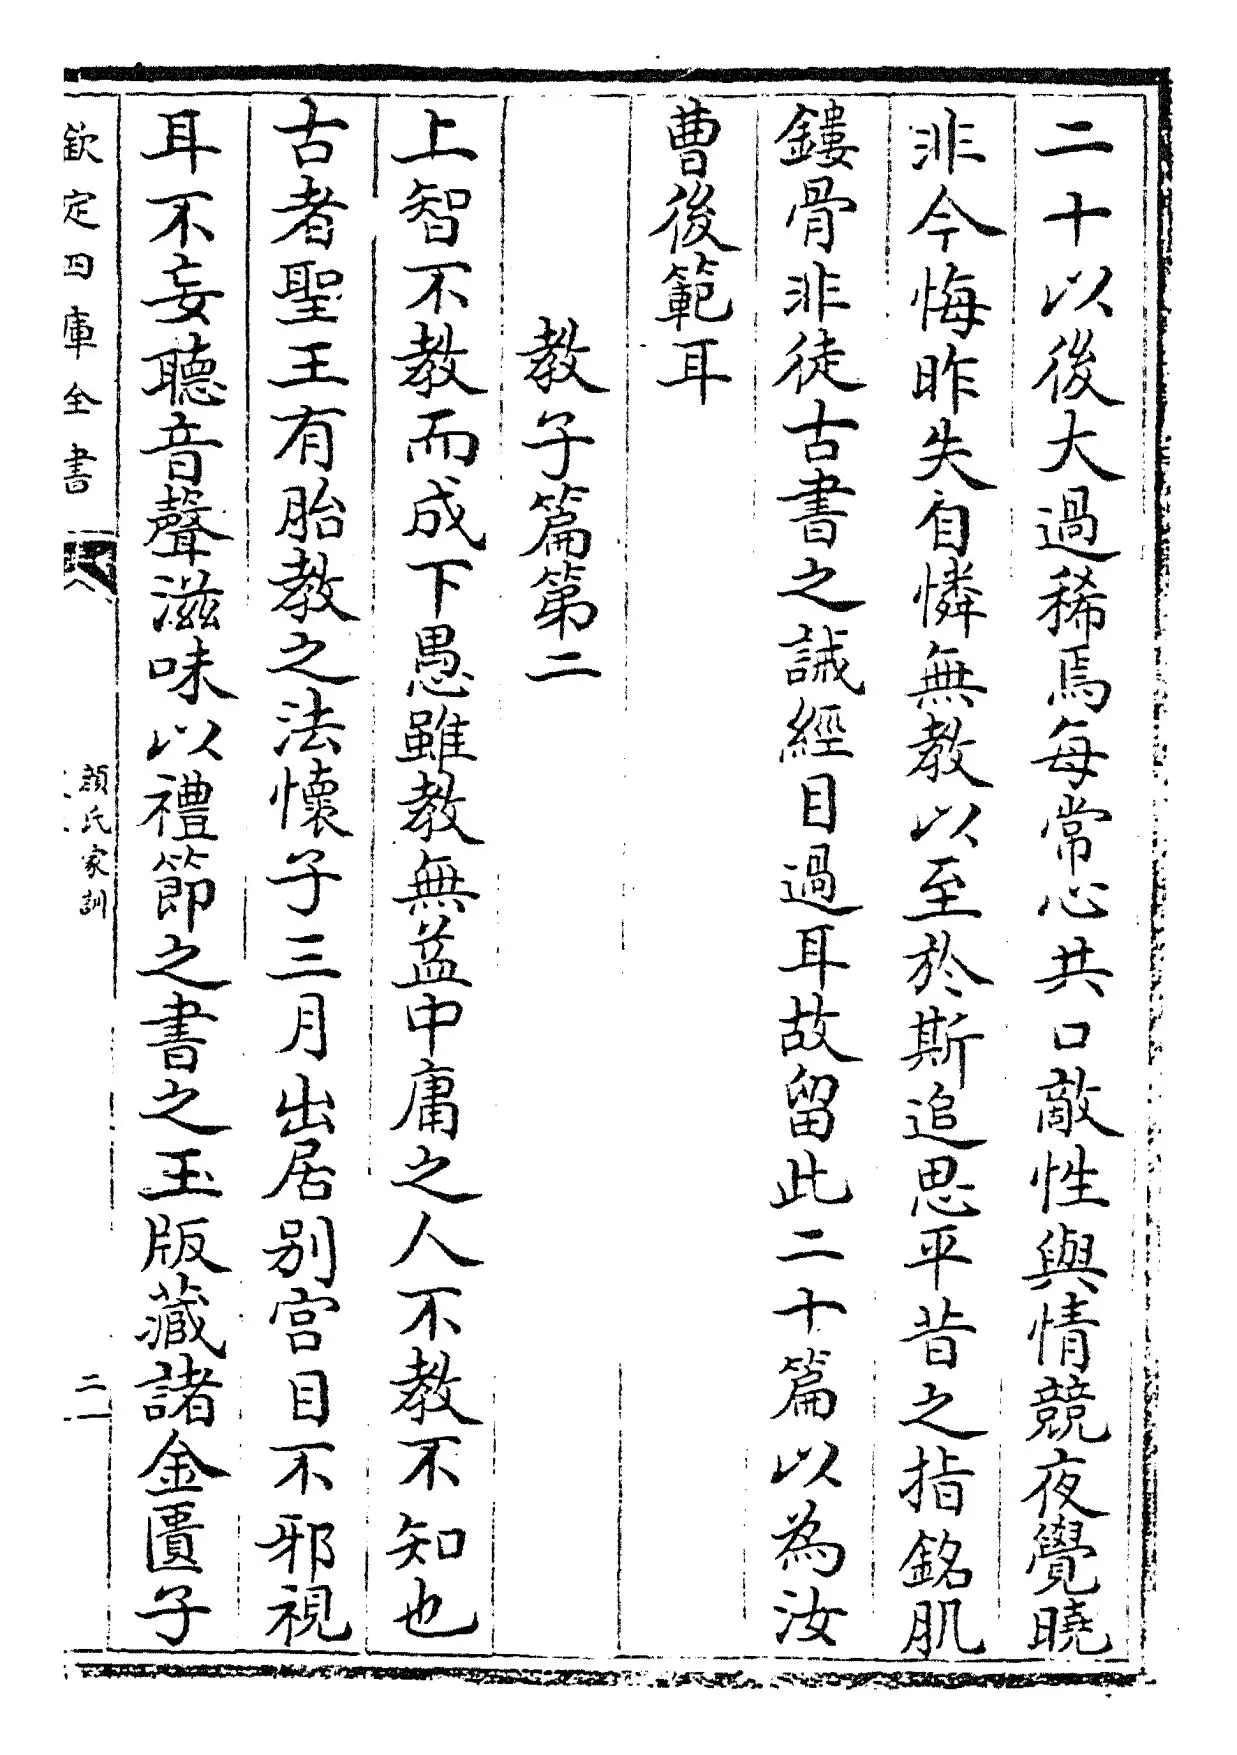 二十以後大過稀焉每常心共口敵性與情競夜覺曉
非今悔昨失自憐無教以至於斯追思平昔之指銘肌
鏤骨非徒古書之誡經目過耳故留此二十篇以為汝
曹後範耳
教子篇第二
上智不教而成下愚雖教無益中庸之人不教不知也
古者聖王有胎教之法懷子三月出居别宫目不邪視
耳不妄聽音聲滋味以禮節之書之玉版藏諸金匱子
欽定四庫全書
顔氏家訓
二